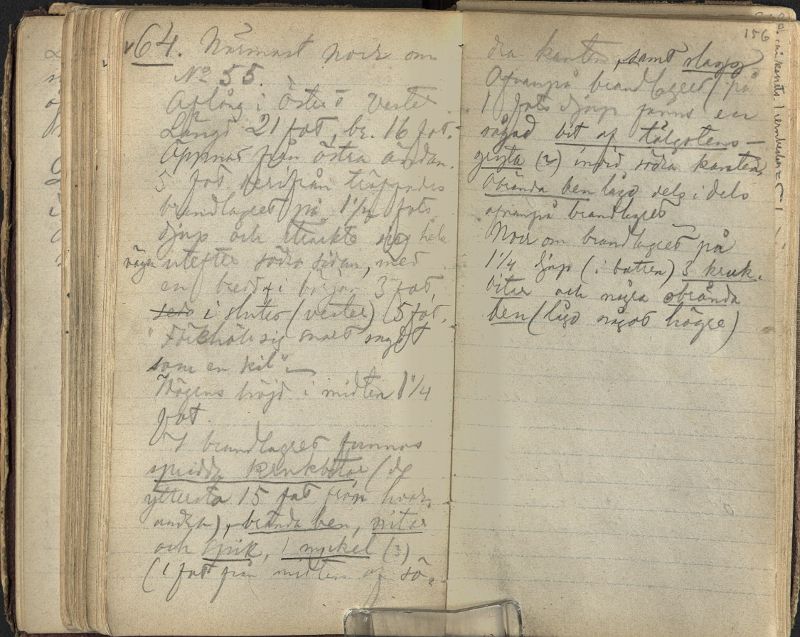 64. Närmast Norr om
No 55.
Aflång i öster o vester
Längd 21 fot, br. 16 fot.
Öppnad från östra ändan.
5 fot derifrån träffades
brandlagret på 1 1/4 fots
djup och sträckte sig hela
vägen utefter södra sidan, med
en bredd i början 3 fot
i slutet (vester) 5 fot.
Förhöll sig snart sagdt
som en kil"
Högens höjd i midten 1 1/4
fot.
I brandlagret funnos
spridda krukbitar (de
yttersta 15 fot från hvar-
andra), brända ben, nitar
och spik, 1 nyckel (3)
(1 fot från midten af sö-
156
dra kanten, samt slagg
Ofvanpå brandlagret på
1 fots djup fanns en
sågad bit af täljstens-
gryta (2) invid södra kanten,
Obrända ben låg dels i dels
ofvanpå brandlagret
Norr om brandlagret på
1 1/4 djup (i botten) 3 kruk-
bitar och några obrända
ben (låg något högre)